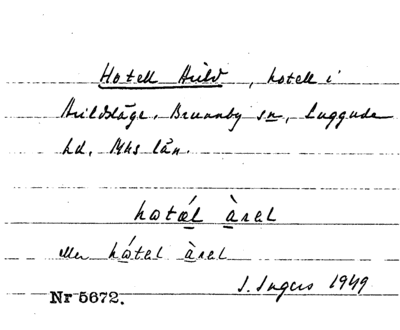 Hotell Arild, hotell i
Arildsläge. Brunnby sn, Luggude
hd, Mhs län.
hotǽl àrel
eller hǻtel àrel
I. Ingers 1949
Nr 5672.